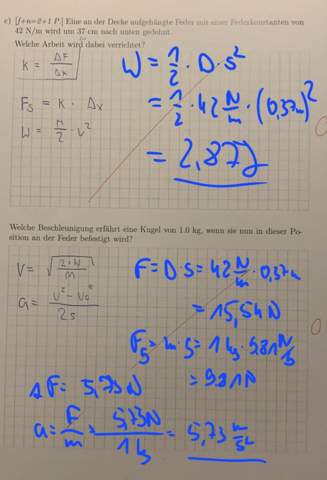 c) [1+1=0+1 P.] Eine an der Decke aufgehängte Feder mit einer Federkonstanten von
42 N/m wird um 37 cm nach unten gedehnt.
Welche Arbeit wird dabei verrichtet?
k = ΔF/Δx
F_S = k · Δx
W = · v²
W = 1/2 · D · s²
= 1/2 · 42 N/m · (0,37m)²
= 2,87J
0
Welche Beschleunigung erfährt eine Kugel von 1.0 kg, wenn sie nun in dieser Po-
sition an der Feder befestigt wird?
v = √(2·W/m)
a = (v² - v₀²)/2s
F = D · s = 42 N/m · 0,37m
= 15,54N
= 1kg · 9,81
= 9,81N
ΔF = 5,73N
a = F/m = 5,73N/1kg = 5,73 m/s²
0